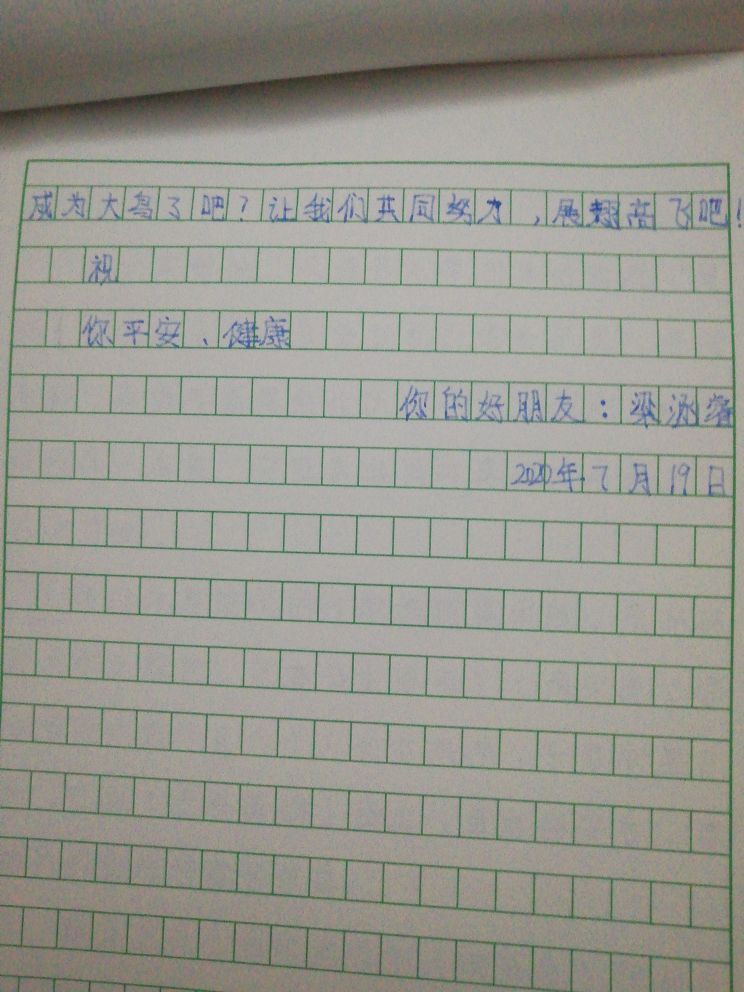 成为大鸟了吧？让我们共同努力，展翅高飞吧！
祝
你平安、健康
你的好朋友：梁泳
2020年7月19日